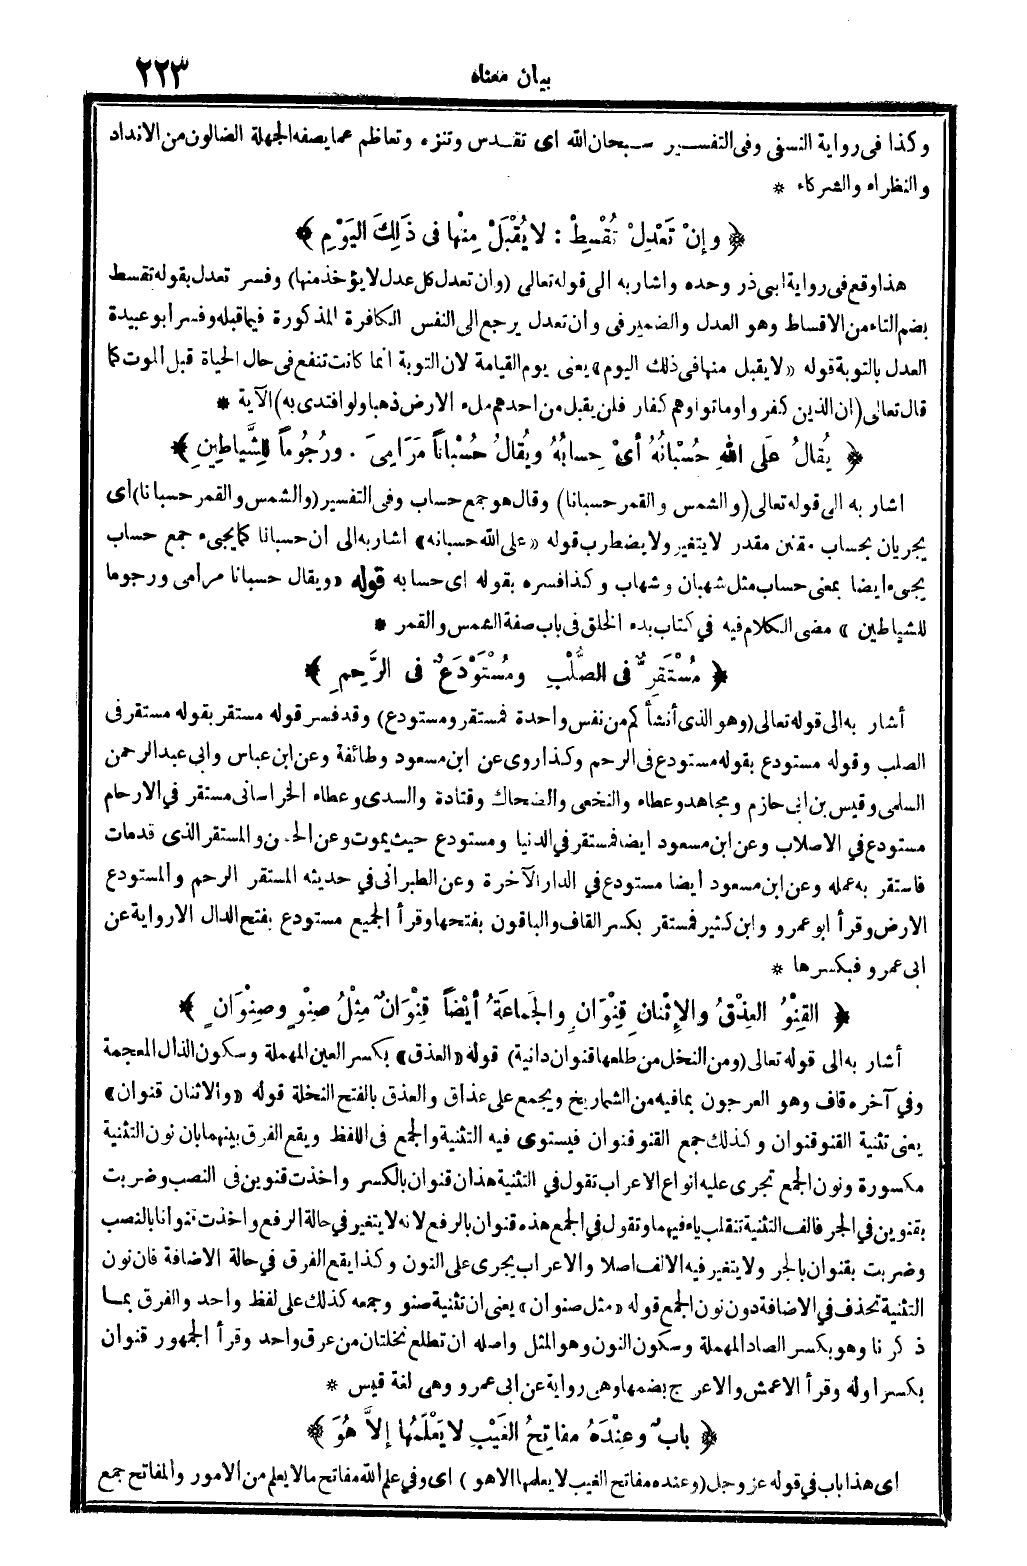 ٢٢٣
بيان معناه
وكذا فى رواية النسفى وفى التفسير سبحان الله اى تقدس وتنزه وتعاظم عما يصفه الجهلة الضالون من الانداد
والنظراء والشركاء *
﴿ وإنْ تَعْدِلْ تُقْسِطْ : لا يُقْبَلْ مِنْها فى ذَلِكَ اليَوْمِ ﴾
هذا وقع فى رواية ابى ذر وحده واشار به الى قوله تعالى (وان تعدل كل عدل لا يؤخذ منها) وفسر تعدل بقوله تقسط
بضم التاء من الاقساط وهو العدل والضمير فى وان تعدل يرجع الى النفس الكافرة المذكورة فيما قبله وفسر أبو عبيدة
العدل بالتوبة قوله «لا يقبل منها فى ذلك اليوم» يعنى يوم القيامة لان التوبة انما كانت تنفع فى حال الحياة قبل الموت كما
قال تعالى (ان الذين كفروا وماتوا وهم كفار فلن يقبل من احدهم ملء الارض ذهبا ولو افتدى به) الآية *
﴿ يُقالُ عَلَى اللهِ حُسْبَانُهُ أىْ حِسابُهُ ويُقالُ حُسْباناً مَرَامِىَ . ورُجُوماً لِلشَّياطِينِ ﴾
اشار به الى قوله تعالى (والشمس والقمر حسبانا) وقال هو جمع حساب وفى التفسير (والشمس والقمر حسبانا) أى
يجريان بحساب مقنن مقدر لا يتغير ولا يضطرب قوله «على الله حسبانه» اشار به الى ان حسبانا كما يجىء جمع حساب
يجىء ايضا بمعنى حساب مثل شهبان وشهاب وكذا فسره بقوله اى حسابه قوله «ويقال حسبانا مرامى ورجوما
للشياطين» مضى الكلام فيه في كتاب بدء الخلق فى باب صفة الشمس والقمر *
﴿ مُسْتَقِرٌّ فى الصُّلْبِ ومُسْتَوْدَعٌ فى الرَّحِمِ ﴾
أشار به الى قوله تعالى (وهو الذى أنشأكم من نفس واحدة فمستقر ومستودع) وقد فسر قوله مستقر بقوله مستقر فى
الصلب وقوله مستودع بقوله مستودع فى الرحم وكذا روى عن ابن مسعود وطائفة وعن ابن عباس وابي عبد الرحمن
السلمى وقيس بن ابى حازم ومجاهد وعطاء والنخعى والضحاك وقتادة والسدى وعطاء الخراسانى مستقر في الارحام
مستودع في الاصلاب وعن ابن مسعود ايضا فمستقر في الدنيا ومستودع حيث يموت وعن الحسن والمستقر الذى قد مات
فاستقر به عمله وعن ابن مسعود أيضا مستودع في الدار الآخرة وعن الطبرانى في حديثه المستقر الرحم والمستودع
الارض وقرأ ابو عمرو وابن كثير فمستقر بكسر القاف والباقون بفتحها وقرأ الجميع مستودع بفتح الدال الا رواية عن
ابى عمرو فبكسرها *
﴿ القِنْوُ العِذْقُ والإِثْنانِ قِنْوَانِ والجَماعَةُ أيْضاً قِنْوَانٌ مِثْلُ صِنْوٍ وصِنْوَانٍ ﴾
أشار به الى قوله تعالى (ومن النخل من طلعها قنوان دانية) قوله «العذق» بكسر العين المهملة وسكون الذال المعجمة
وفي آخره قاف وهو العرجون بما فيه من الشماريخ ويجمع على عذاق والعذق بالفتح النخلة قوله «والاثنان قنوان»
يعنى تثنية القنو قنوان وكذلك جمع القنو قنوان فيستوى فيه التثنية والجمع فى اللفظ ويقع الفرق بينهما بان نون التثنية
مكسورة ونون الجمع تجرى عليه انواع الاعراب تقول في التثنية هذان قنوان بالكسر واخذت قنوين فى النصب وضربت
بقنوين في الجر فالف التثنية تنقلب ياء فيهما وتقول في الجمع هذه قنوان بالرفع لانه لا يتغير في حالة الرفع واخذت قنوانا بالنصب
وضربت بقنوان بالجر ولا يتغير فيه الالف اصلا والاعراب يجرى على النون وكذا يقع الفرق في حالة الاضافة فان نون
التثنية تحذف في الاضافة دون نون الجمع قوله «مثل صنوان» يعنى ان تثنية صنو وجمعه كذلك على لفظ واحد والفرق بما
ذكرنا وهو بكسر الصاد المهملة وسكون النون وهو المثل واصله ان تطلع نخلتان من عرق واحد وقرأ الجمهور قنوان
بكسر اوله وقرأ الاعمش والاعرج بضمها وهى رواية عن ابى عمرو وهى لغة قيس *
﴿ بابٌ وعِنْدَهُ مفاتِحُ الغَيْبِ لا يَعْلَمُها إلاَّ هُوَ ﴾
اى هذا باب في قوله عز وجل (وعنده مفاتح الغيب لا يعلمها الا هو) اى وفي علم الله مفاتح ما لا يعلم من الامور والمفاتح جمع